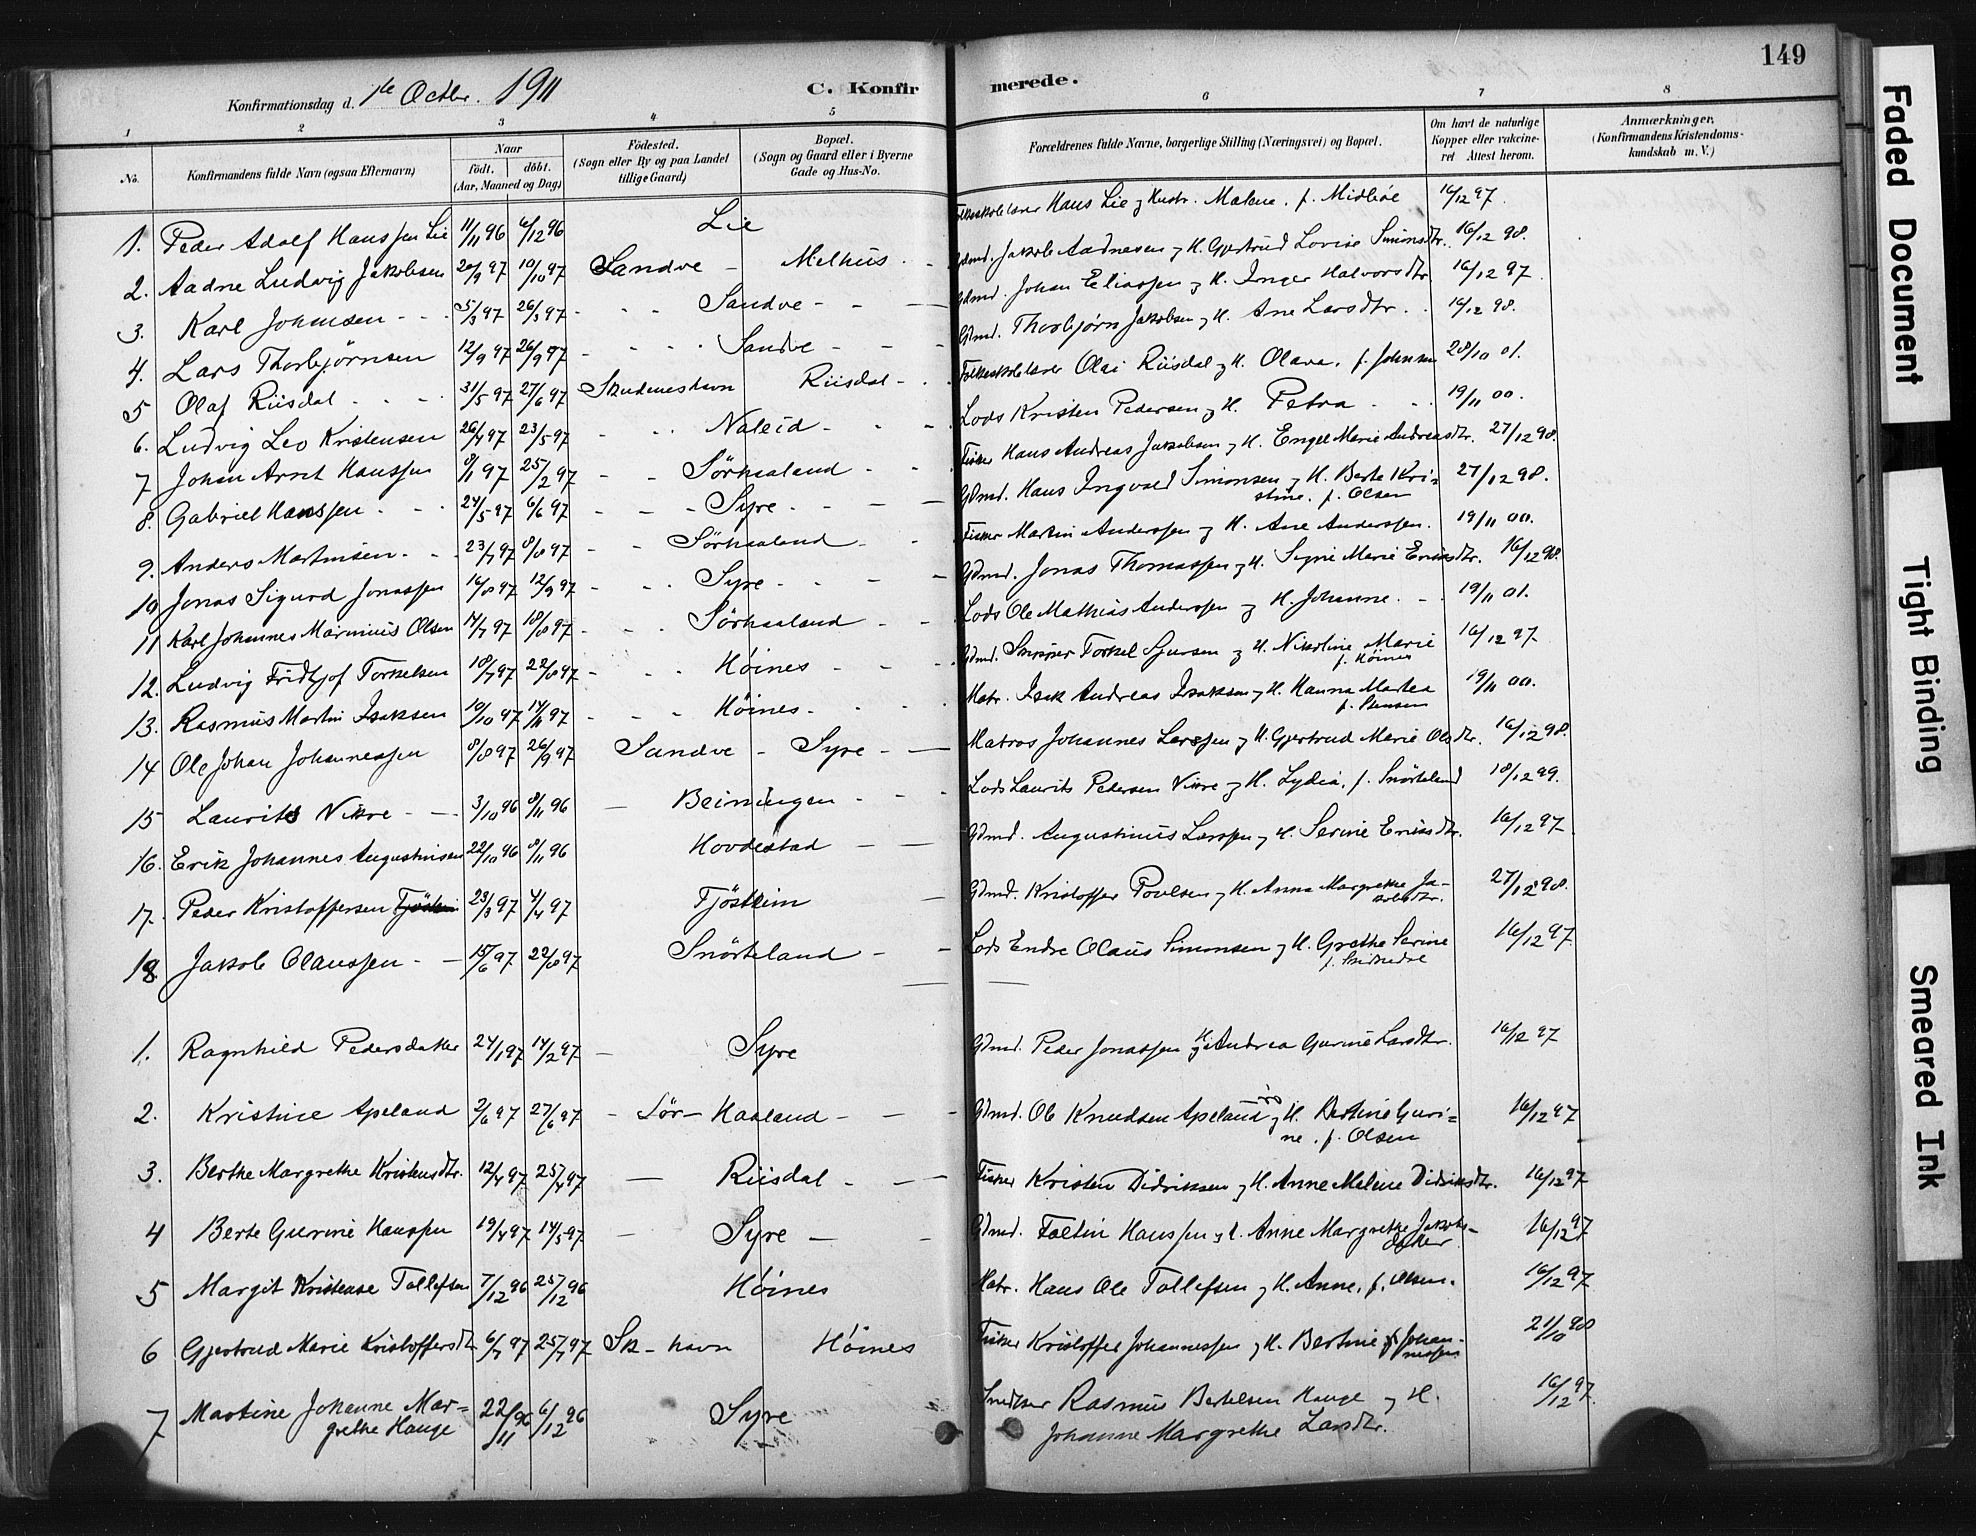 149
Konfirmationsdag d. 1ste Octbr. 1911
C. Konfirmerede.
1 2 3 4 5 6 7 8
No.
Konfirmandens fulde Navn (ogsaa Efternavn)
Naar
født. døbt.
(Aar, Maaned og Dag)
Fødested.
(Sogn eller By og paa Landet
tillige Gaard)
Bopæl.
(Sogn og Gaard eller i Byerne
Gade og Hus-No.
Forældrenes fulde Navne, borgerlige Stilling (Næringsvei) og Bopæl.
Om havt de naturlige
Kopper eller vakcine-
ret Attest herom.
Anmærkninger.
(Konfirmandens Kristendoms-
kundskab m. V.)
1. Peder Adolf Hanssen Lie 11/11 96 6/12 96 Lie Folkeskolelærer Hans Lie og Hustr. Malene, f. Midbøe 16/12 97.
2. Aadne Ludvig Jakobsen 20/9 97 10/10 97 Sandve - Melhus Gdmd. Jakob Aadnesen og H. Gjertrud Lovise Simonsdtr. 16/12 98.
3. Karl Johansen 5/3 97 26/3 97 Sandve Gdmd. Johan Eliassen og H. Inger Halvorsdtr 16/12 97.
4. Lars Thorbjörnsen 12/9 97 26/9 97 Sandve Gdmd. Thorbjørn Jakobsen og H. Ane Larsdtr. 16/12 98.
5 Olaf Riisdal 31/5 97 27/6 97 Skudeneshavn Riisdal Folkeskolelærer Olai Riisdal og H. Olava, f. Johnsen 28/10 01.
6. Ludvig Leo Kristensen 26/4 97 23/5 97 Naleid Lods Kristen Pedersen og H. Petra 19/11 00.
7 Johan Arnt Hanssen 8/1 97 25/2 97 Sörhaaland Fisker Hans Andreas Jakobsen og H. Engel Marie Andreasdtr. 27/12 98.
8. Gabriel Hanssen 24/5 97 6/6 97 Syre Gdmd. Hans Ingvald Simonsen og H. Berte Kri-
stine, f. Olsen 27/12 98.
9. Anders Martinsen 23/7 97 8/8 97 Sörhaaland Fisker Martin Anderssen og H. Ane Anderssen. 19/11 00.
10 Jonas Sigurd Jonassen 16/8 97 12/9 97 Syre Gdmd. Jonas Thomassen og H. Signe Marie Eriksdtr. 16/12 98.
11 Karl Johannes Marinius Olsen 14/7 97 18/8 97 Sörhaaland Lods Ole Mathias Anderssen og H. Johanne. 19/11 01.
12. Ludvig Fridtjof Torkelsen 18/7 97 22/8 97 Høines Gdmd. Torkel Sjursen og H. Nikoline Marie
f. Höines 16/12 97.
13. Rasmus Martin Isaksen 10/10 97 14/11 97 Høines Matr. Isak Andreas Isaksen og H. Hanna Martea 19/11 00.
14 Ole Johan Johannessen 8/8 97 26/9 97 Sandve - Syre Matros Johannes Larssen og H. Gjertrud Marie Olsdtr. 16/12 98.
15 Laurits Vikre 3/10 96 8/11 96 Beiningen Lods Laurits Pedersen Vikre og H. Lydia, f. Snörteland 18/12 99.
16. Erik Johannes Augustinsen 22/10 96 8/11 96 Hovdestad Gdmd. Augustinus Larssen og H. Serine Eriksdtr. 16/12 97.
17. Peder Kristoffersen 23/3 97 4/4 97 Tjöstheim Gdmd. Kristoffer Povelsen og H. Anna Margrethe Ja-
kobsdtr. 27/12 98.
18 Jakob Olaussen 15/6 97 22/8 97 Snörteland Lods Endre Olaus Simonsen og H. Grethe Serine 16/12 97
1. Ragnhild Pedersdatter 24/1 97 14/2 97 Syre Gdmd. Peder Jonassen og H. Andrea Gurine Larsdtr. 16/12 97
2. Kristine Apeland 2/6 97 27/6 97 Sör-Haaland Gdmd. Ole Knudsen Apeland og H. Bertine Guri-
ne, f. Olsen 16/12 97
3. Berthe Margrethe Kristensdtr. 12/4 97 25/4 97 Riisdal Fisker Kristen Didriksen og H. Anne Meline Didriksdtr. 16/12 97
4 Berte Gurine Hanssen 19/4 97 14/5 97 Syre Gdmd. Faltin Hanssen og H. Anne Margrethe Jakobs-
datter 16/12 97
5 Margit Kristense Tollefsen 7/12 96 25/12 96 Høines Matr. Hans Ole Tollefsen og H. Anne, f. Olsen. 16/12 97
6 Gjertrud Marie Kristoffersdtr 6/7 97 25/7 97 Sk-havn Høines Fisker Kristoffer Johannessen og H. Bertine f. Johan-
nessen 21/10 98
7 Martine Johanne Mar-
grethe Hauge 22/11 96 6/12 96 Syre Snedker Rasmus Bertelsen Hauge og H.
Johanne Margrethe Larsdtr. 16/12 97.
Faded Document
Tight Binding
Smeared Ink